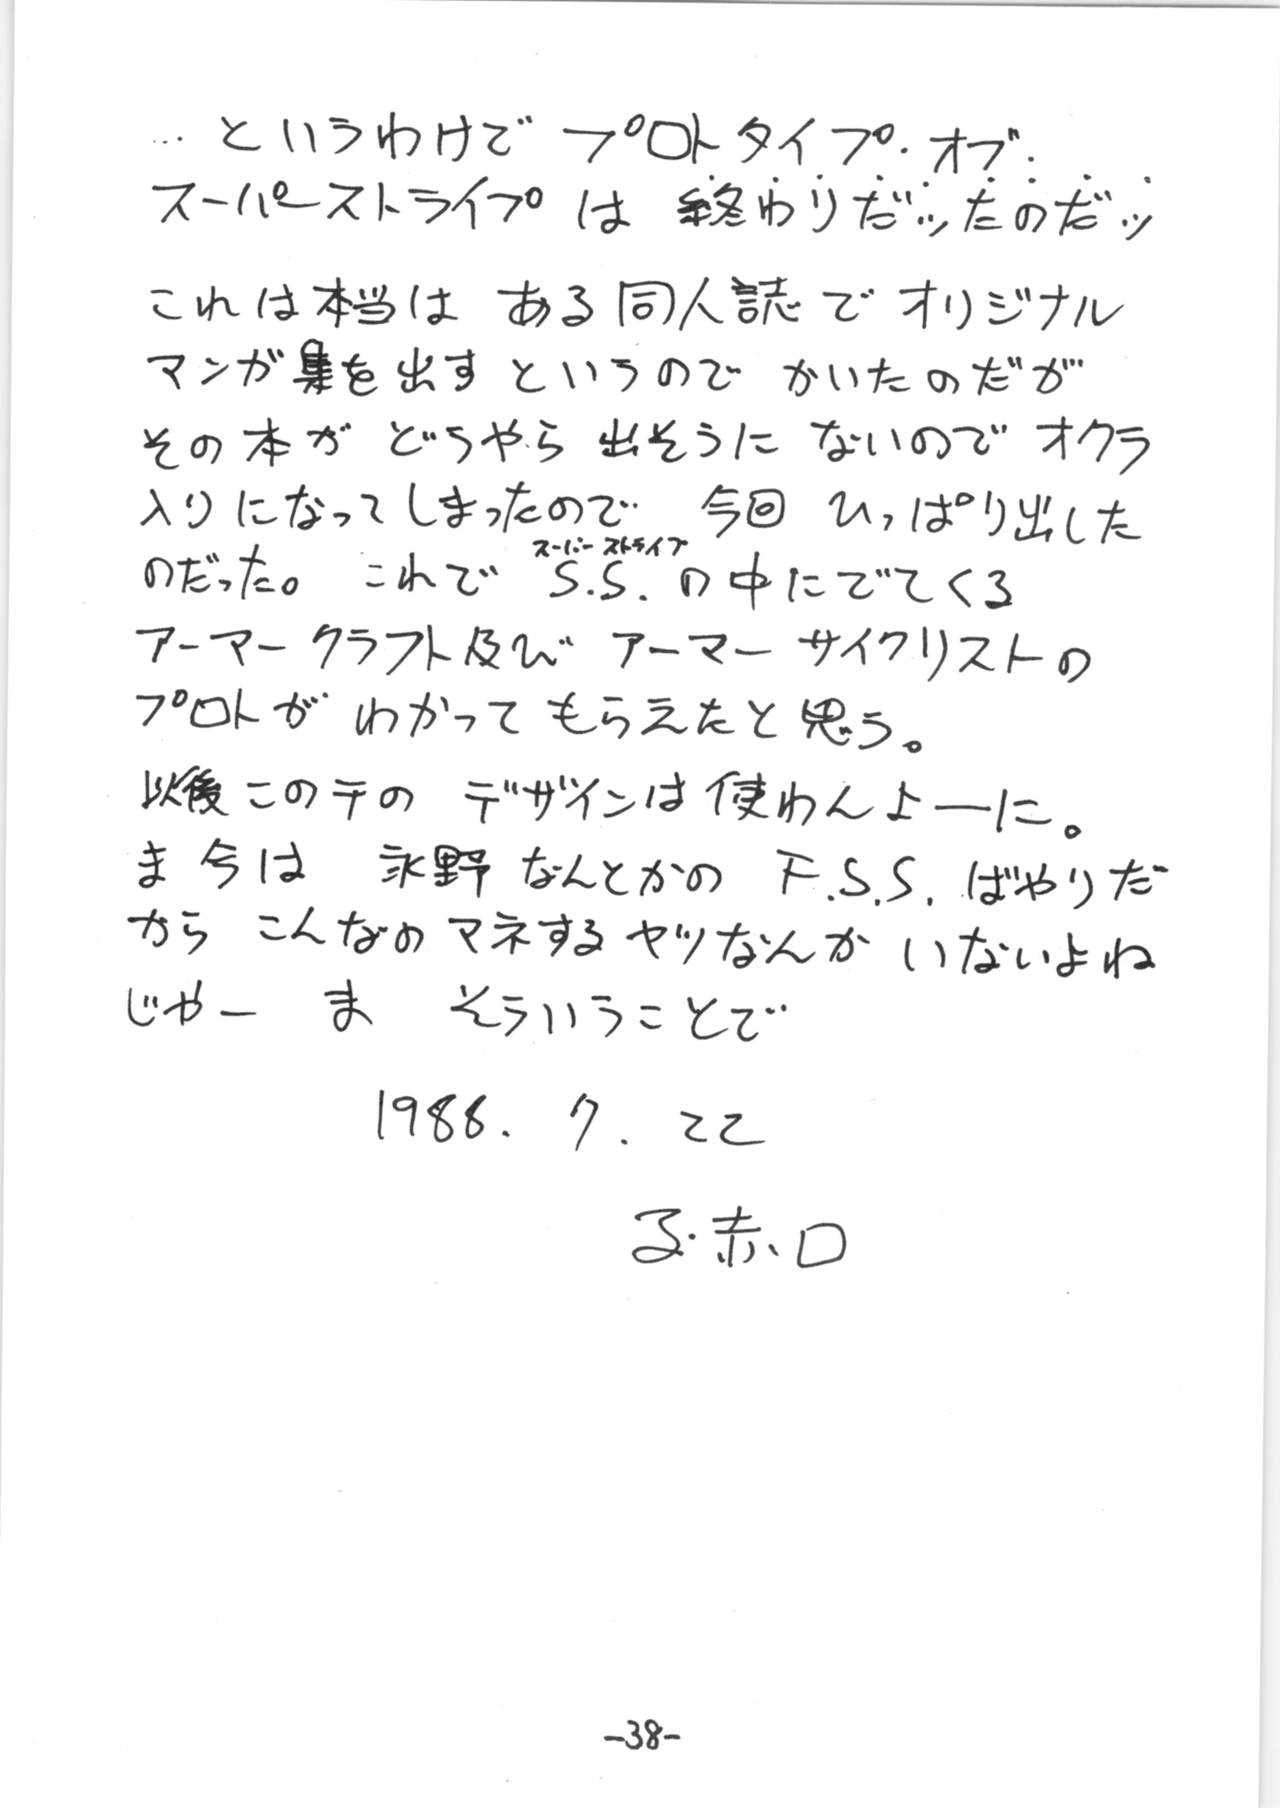 …というわけで プロトタイプ・オブ・
スーパーストライプは 終わりだッたのだッ
これは本当は ある同人誌でオリジナル
マンガ集を出すというので かいたのだが
その本が どうやら 出そうに ないので オクラ
入りになってしまったので 今回 ひっぱり出した
のだった。 これで S.S.の中にでてくる
スーパーストライプ
アーマークラフト及び アーマーサイクリストの
プロトが わかって もらえたと思う。
以後このテの デザインは使わんよーに。
ま今は 永野なんとかの F.S.S.ばやりだ
から こんなのマネするヤツなんか いないよね
じゃー ま そういうことで
1988. 7. 22
-38-